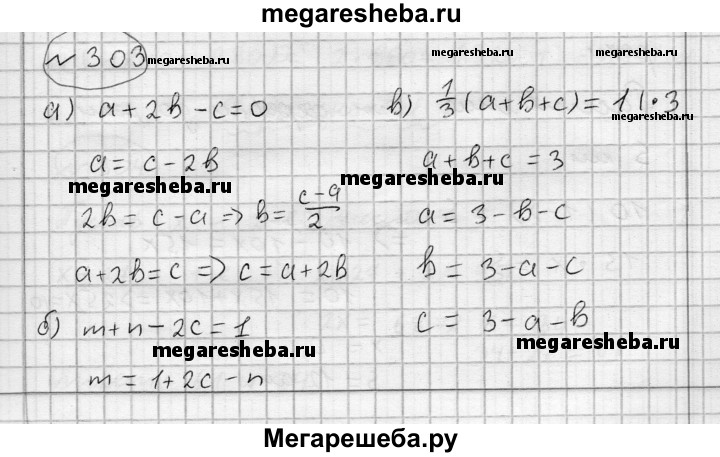 megaresheba.ru
№ 303
megaresheba.ru
megaresheba.ru
а) a + 2b - c = 0
a = c - 2b
megaresheba.ru
2b = c - a => b = (c - a)/2
a + 2b = c => c = a + 2b
б) m + n - 2c = 1
megaresheba.ru
m = 1 + 2c - n
в) 1/3 (a + b + c) = 1 | · 3
a + b + c = 3
megaresheba.ru
a = 3 - b - c
b = 3 - a - c
c = 3 - a - b
megaresheba.ru
Мегарешеба.ру